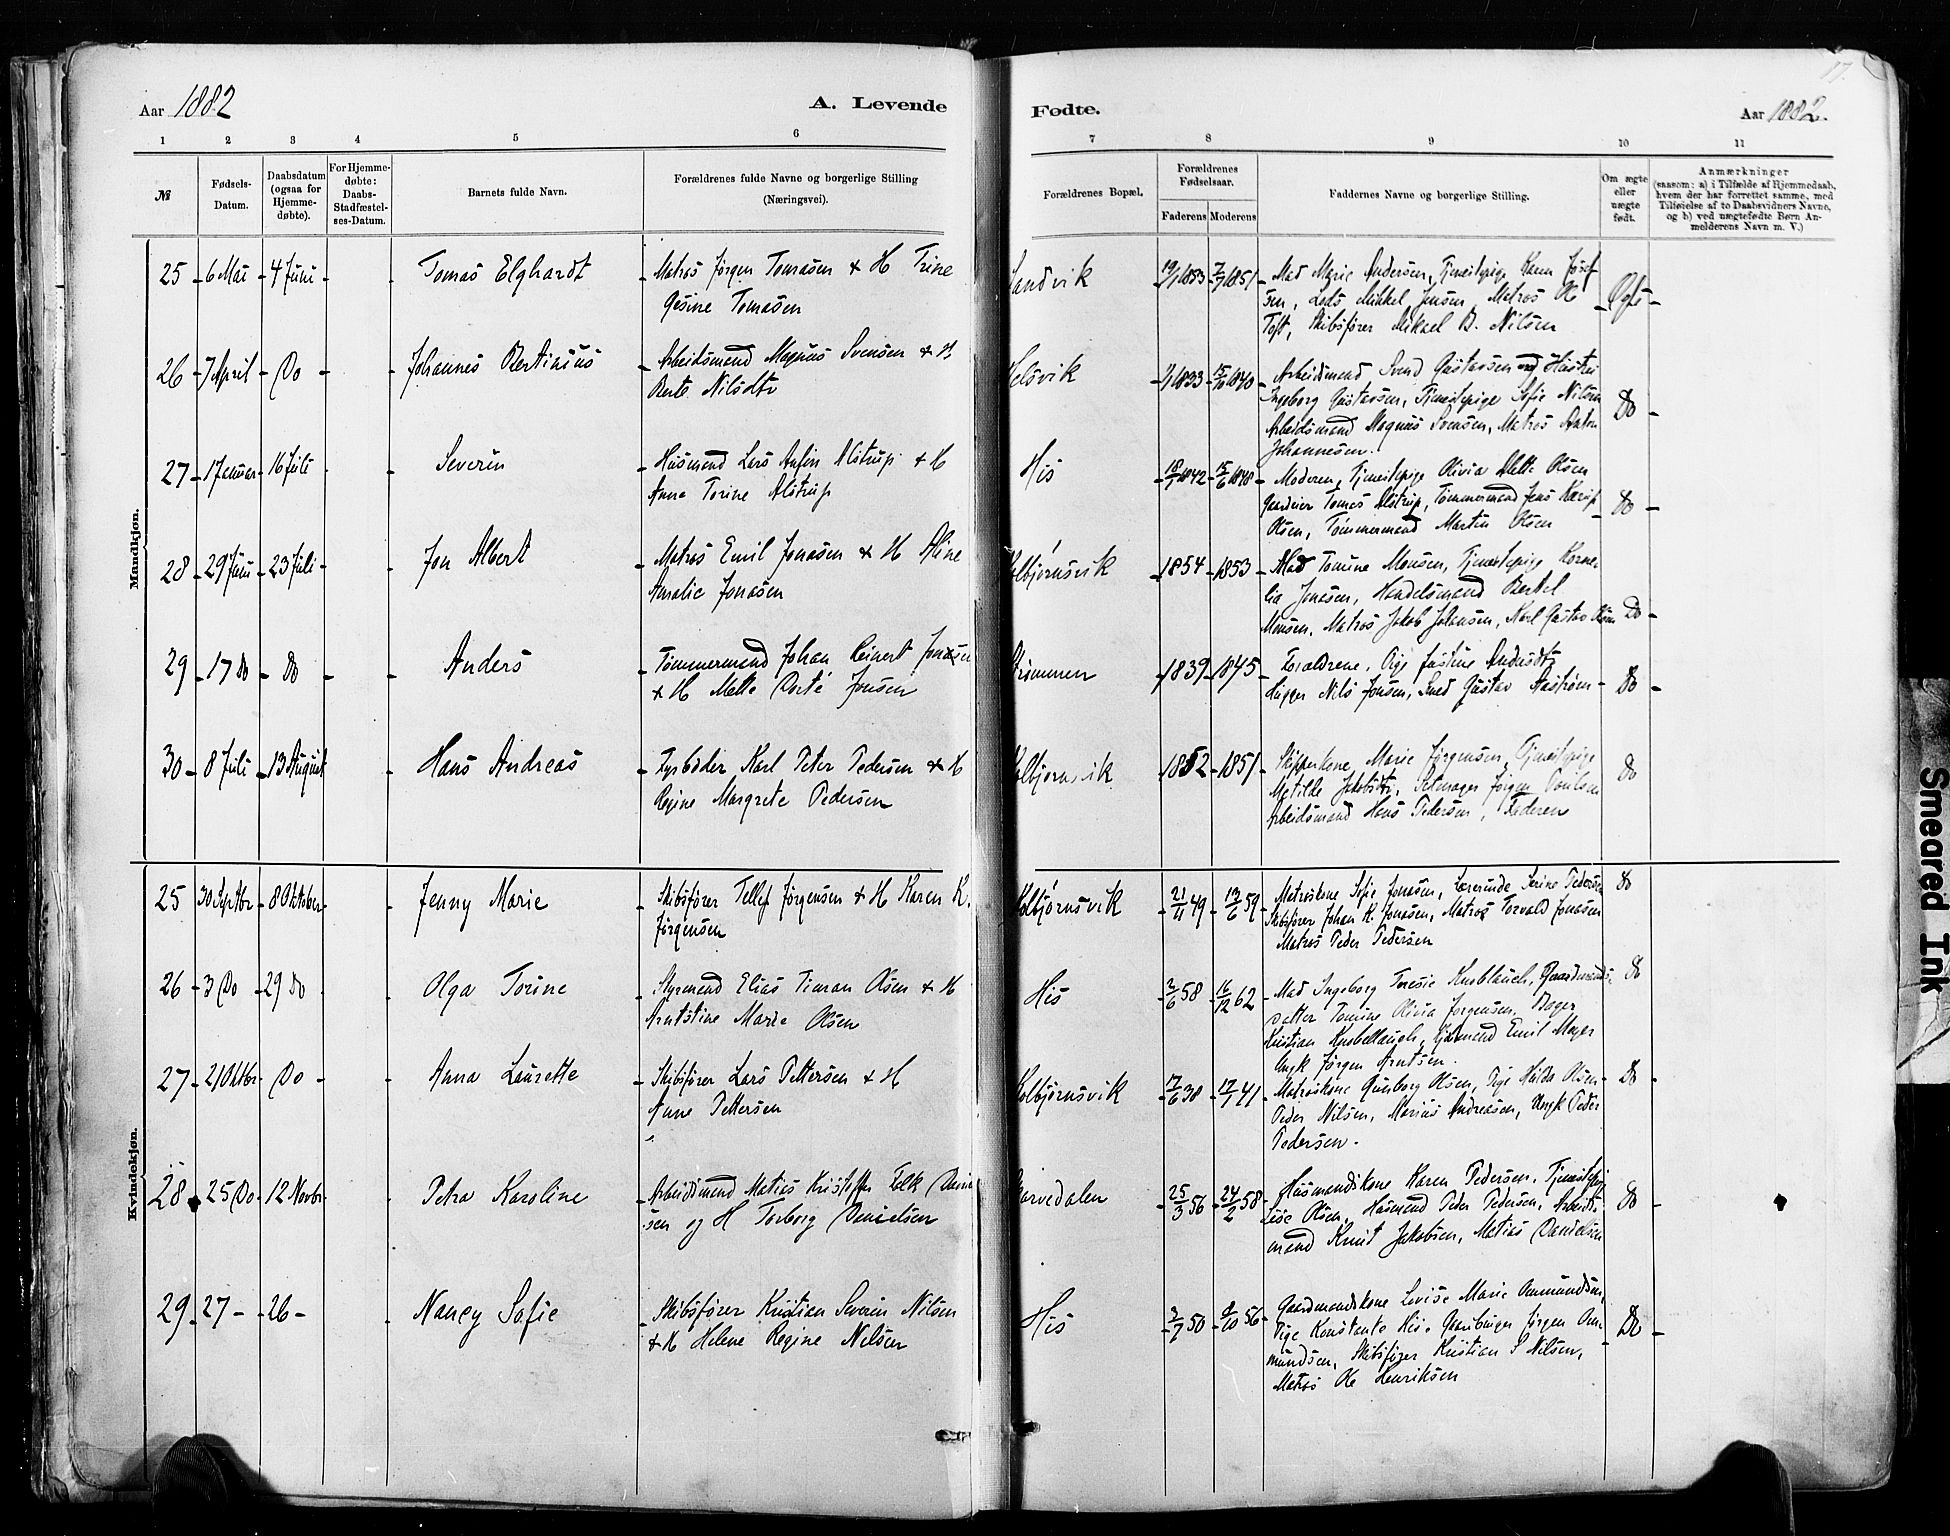 17.
Aar 1882
A. Levende
Fødte.
Aar 1882.
1 2 3 4 5 6 7 8 9 10 11
№
Fødsels-
Datum.
Daabsdatum
(ogsaa for
Hjemme-
døbte).
For Hjemme-
døbte:
Daabs-
Stadfæstel-
ses-Datum.
Barnets fulde Navn.
Forældrenes fulde Navne og borgerlige Stilling
(Næringsvei).
Forældrenes Bopæl.
Forældrenes
Fødselsaar.
Faderens Moderens
Faddernes Navne og borgerlige Stilling.
Om ægte
eller
uægte
født.
Anmærkninger
(saasom: a) i Tilfælde af Hjemmedaab,
hvem der har forrettet samme, med
Tilføielse af to Daabsvidners Navne,
og b) ved uægtefødte Børn An-
melderens Navn m. V.)
Mandkjøn.
25 - 6 Mai - 4 Juni - Tomas Elghardt
Matros Jørgen Tomasen & H Trine
Gesine Tomasen
Sandvik
19/1 1853 7/7 1851
Mad Marie Andersen, Tjenestepige Karen Josef-
sen, Lods Mikkel Jensen, Matros Ole
Toft, Skibsfører Mikael B. Nilsen
Ægte
26 - 7 April - Do - Johannes Bertinius
Arbeidsmand Magnus Svensen & H
Berte Nilsdtr
Helsvik
1833 15/10 1840
Arbeidsmand Svend Gustavsen og Hustru
Ingeborg Gustavsen, Tjenestepige Sofie Nilsen
Arbeidsmand Magnus Svensen, Matros Anton
Johannesen.
Do
27 - 1 Januar - 16 Juli - Severin
Husmand Lars Anfin Alstrup & H
Anna Torine Alstrup
His
18/1 1842 15/6 1848
Moderen, Tjenestepige Olivia Mette Olsen
Gaardeier Tomas Alstrup, Tømmermand Jens
Olsen, Tømmermand Martin Olsen
Do
28 - 29 Juni - 23 Juli - Jon Albert
Matros Emil Jonasen & H Aline
Amalie Jonasen
Kolbjørnsvik
1854 - 1853
Mad Tomine Monsen, Tjenestepige Korne-
lia Jonasen, Handelsmand Bertel
Monsen, Matros Jakob Johansen, Karl Gustav Olsen
Do
29 - 17 Do - Do - Anders
Tømmermand Johan Reinert Jonsen
& H Mette Dorté Jonsen
Strømmen
1839 - 1845
Forældrene, Pige Justine Andersdtr
Ligger Nils Jonsen, Smed Gustav Aastrøm
Do
30 - 8 Juli - 13 August - Hans Andreas
Fyrbøder Karl Peter Pedersen & H
Regine Margrete Pedersen
Kolbjørnsvik
1852 - 1851
Skipperkone Marie Jørgensen, Tjenestepige
Matilde Jakobsdtr, Seilmager Jørgen Poulsen
Arbeidsmand Hans Pedersen, Faderen
Do
Kvindekjøn.
25 30 Septbr - 8 Oktober Jenny Marie
Skibsfører Tellef Jørgensen & H Karen K.
Jørgensen
Kolbjørnsvik
21/11 49 13/6 59
Matroskone Sofie Jonasen, Lærerinde Serine Pedersen
Skibsfører Johan K. Jonasen, Matros Torvald Jonasen
Matros Peder Pedersen
Do
26 - 3 Do - 29 Do Olga Torine
Styrmand Elias Timran Olsen & H
Arntstine Marie Olsen
His
2/6 58 16/12 62
Mad Ingeborg Teresie Knoblauch, Gaardmands-
datter Tomine Olivia Jørgensen, Bager
Kristian Knoblauch, Styrmand Emil Meyer
Ungk Jørgen Arntsen.
Do
27 - 21 Oktbr - Do - Anna Laurette
Skibsfører Lars Pettersen & H
Anne Pettersen
Kolbjørnsvik
17/6 38 12/1 41
Matroskone Gunborg Olsen, Pige Hulda Olsen
Peder Nilsen, Marius Andreasen, Ungk Peder
Pedersen.
Do
28 - 25 Do - 12 Novbr - Petra Karoline
Arbeidsmand Matias Kristoffer Falk Daniel-
sen og H Torborg Danielsen
25/3 56 24/2 58
Husmandskone Karen Pedersen, Tjenestepige
Lise Olsen, Husmand Peter Pedersen, Arbeids-
mand Knut Jakobsen, Matias Danielsen
Do
29 - 27 - - 26 - Nancy Sofie
Skibsfører Kristian Severin Nilsen
& H Helene Regine Nilsen
His
3/7 50 9/10 56
Gaardmandskone Lovise Marie Ommundsen,
Pige Konstanse His, Gaardbruger Jørgen Om-
mundsen, Skibsfører Kristian S Nilsen,
Matros Ole Henriksen
Do
Smeared Ink